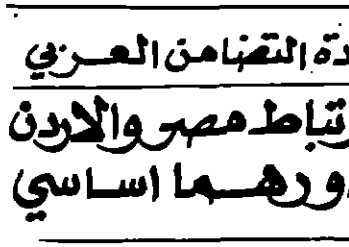 دة التضامن العربي
رتباط مصر والاردن
دورهما اساسي